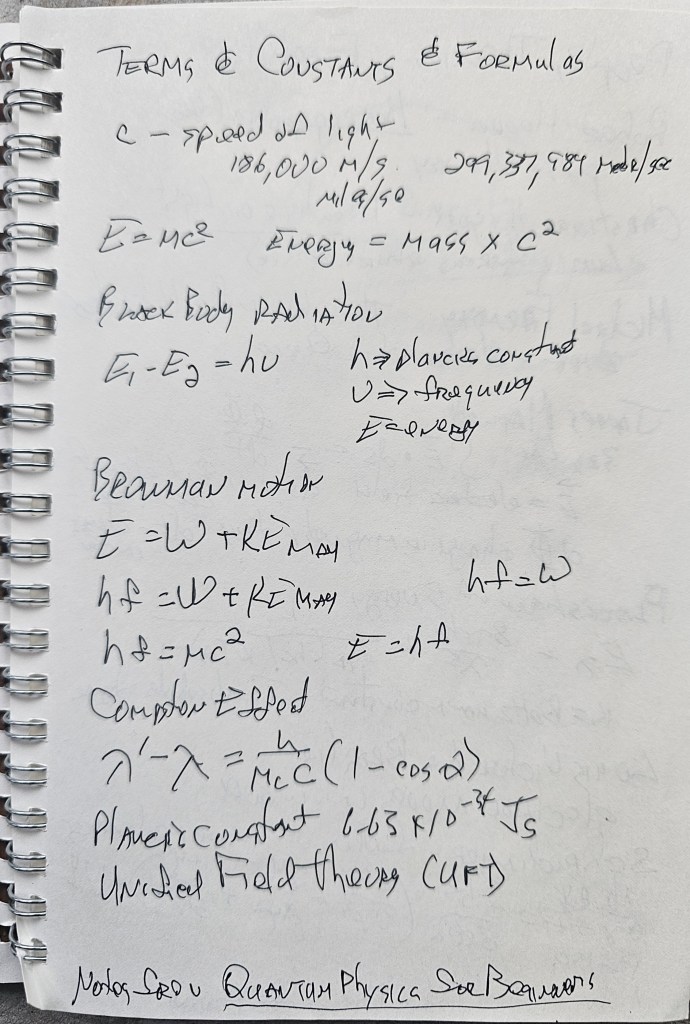 TERMS & CONSTANTS & FORMULAS
c - speed of light
186,000 M/S. 299,337,984 Meter/sec
Mile/sec
E=MC² Energy = Mass x C²
Black Body RADIATION
E₁-E₂ = hυ h⇒ plancks constant
υ⇒ frequency
E=energy
Brownian motion
E = W + KE MAX
hf = W + KE MAX hf = W
hf = MC² E = hf
Compton Effect
λ'-λ = h/McC (1-cosα)
Planck constant 6.63 x10⁻³⁴ Js
Unified Field theory (UFT)
Notes from Quantum Physics for Beginners